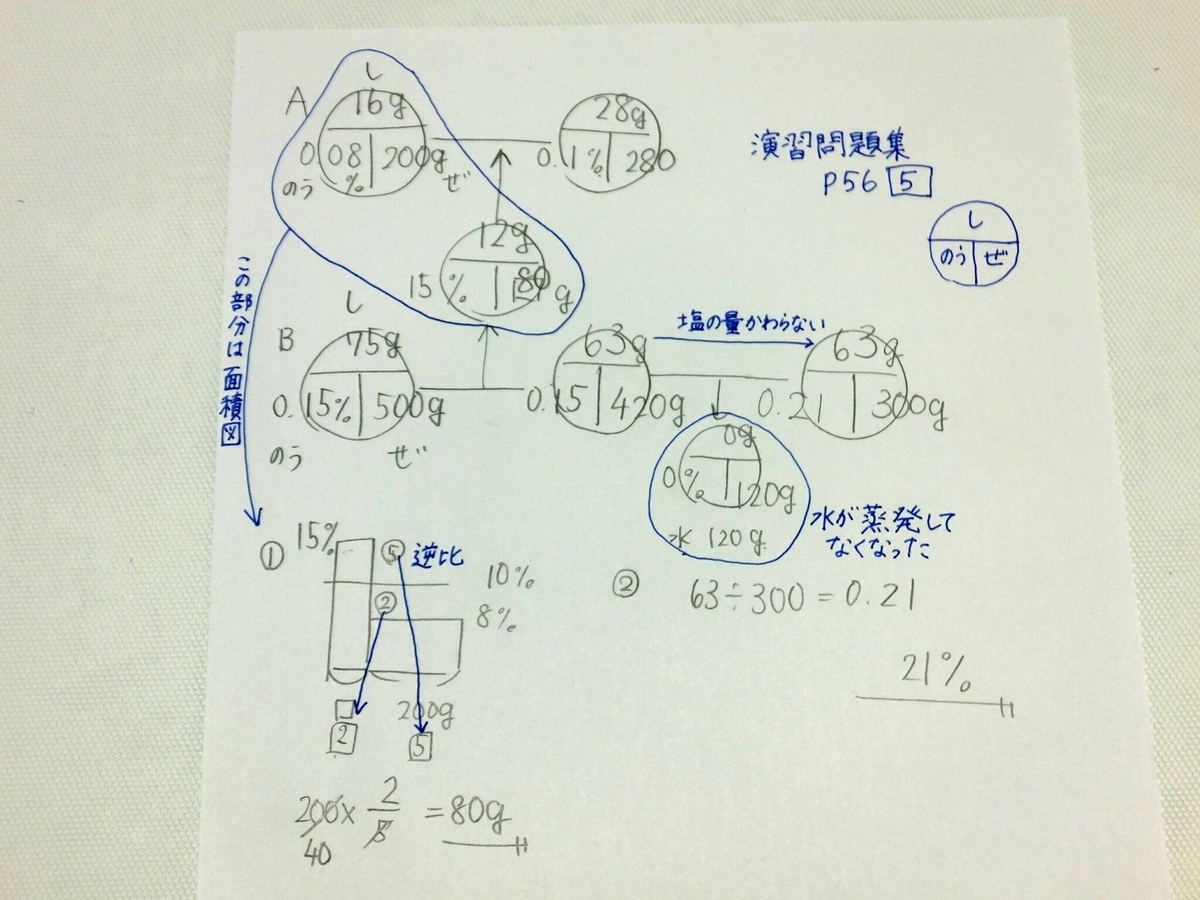 A
し
16g
0.08%
200g
のう
ぜ
28g
0.1%
280
演習問題集
P56 5
し
のう ぜ
12g
15%
80
g
この部分は面積図
B
し
75g
0.15%
500g
のう
ぜ
63g
0.15
420g
塩の量かわらない
63g
0.21
300g
0g
0%
120g
水 120g
水が蒸発して
なくなった
①
15%
⑤ 逆比
10%
②
8%
□ 200g
2 5
200×2/5=80g
40
② 63÷300=0.21
21%